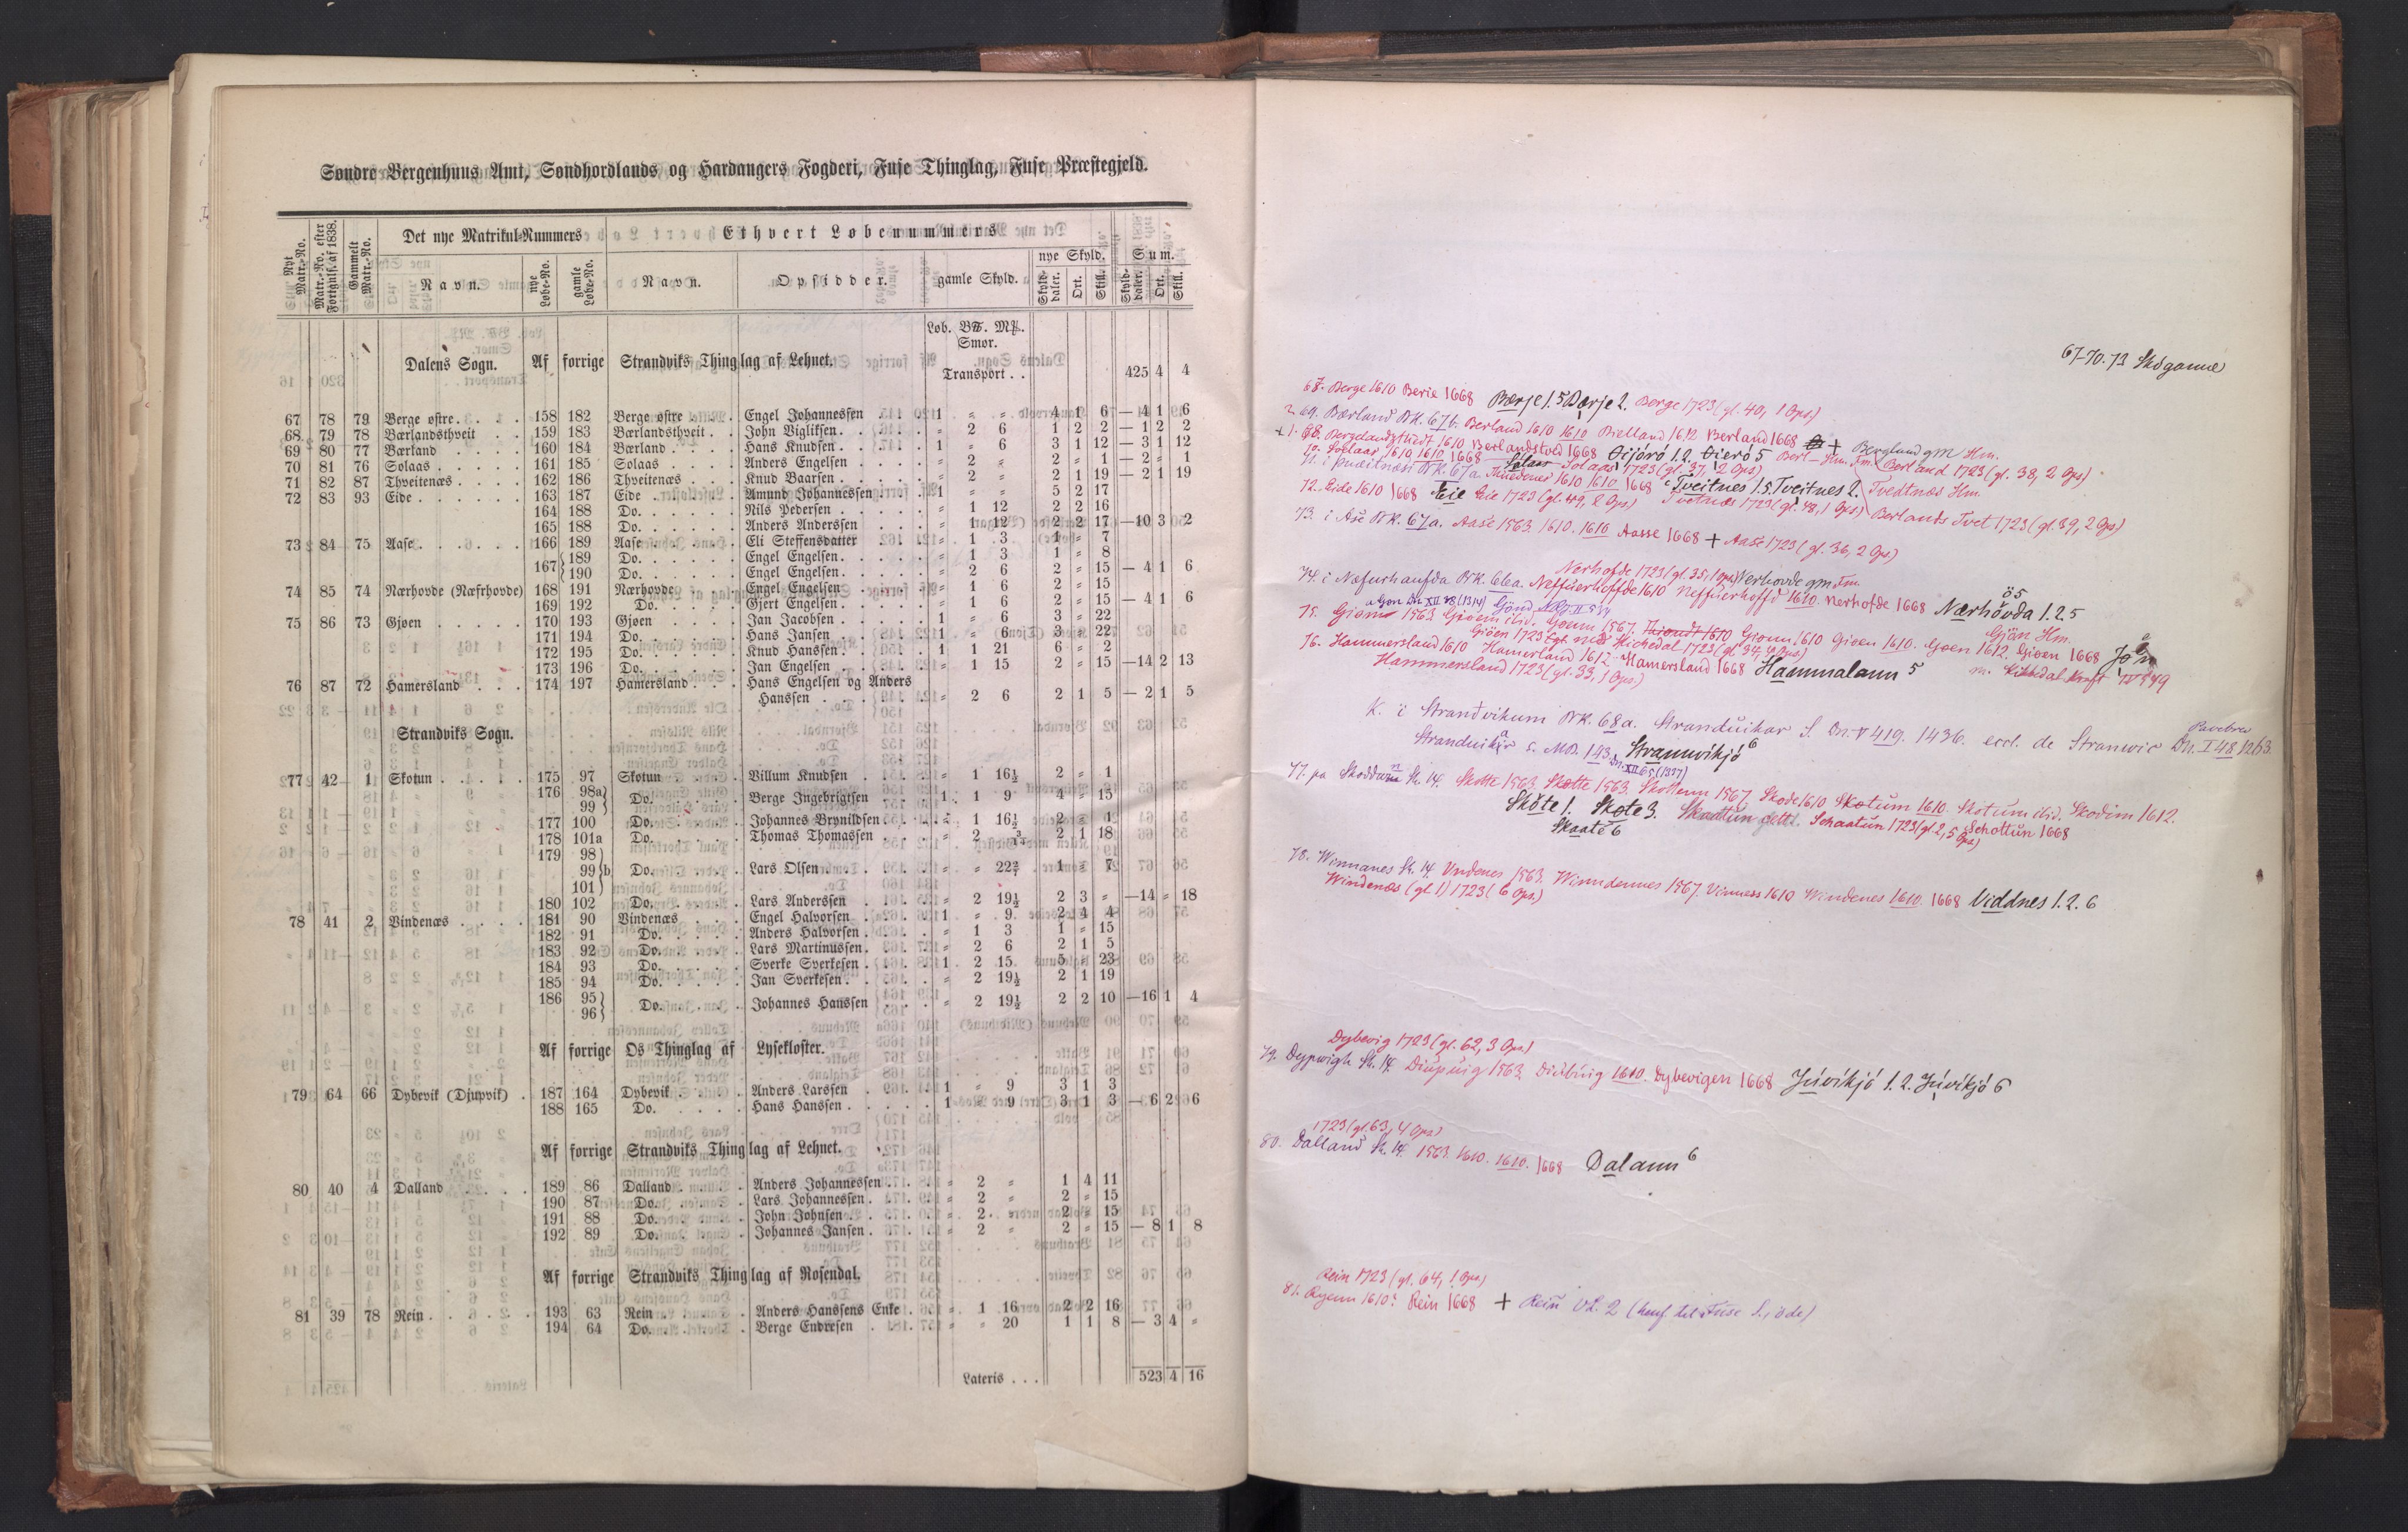 Søndre Bergenhuus Amt, Søndhordlands og Hardangers Fogderi, Fuse Thinglag, Fuse Præstegjeld.
Nyt Matr.-No. | Matr.-No. efter Fortgnlf. af 1838. | Gammelt Matr.-No. | Det nye Matrikul-Nummers | Ethvert Løbenummers
Navn. | nye Løbe-No. | gamle Løbe-No. | Navn. | Opsidder. | gamle Skyld. | nye Skyld. | Sum.
Skylddaler. | Ort. | Skill. | Skylddaler. | Ort. | Skill.
Løb. Smør.
Dalens Sogn. Af forrige Strandviks Thinglag af Lehnet.
Transport . . 425 4 4
67 78 79 Berge østre . . . 158 182 Berge østre . . Engel Johannessen . . 1 " " 4 1 6 — 4 1 6
68 79 78 Bærlandsthveit . . 159 183 Bærlandsthveit . . John Vigliksen . . " 2 6 1 2 2 — 1 2 2
69 80 77 Bærland . . . 160 184 Bærland . . . Hans Knudsen . . 1 " 6 3 1 12 — 3 1 12
70 81 76 Solaas . . . 161 185 Solaas . . . Anders Engelsen . . " 2 " 2 " 1 — 2 " 1
71 82 87 Thveitenæs . . . 162 186 Thveitenæs . . . Knud Baarsen . . " 2 " 2 1 19 — 2 1 19
72 83 93 Eide . . . 163 187 Eide . . . Amund Johannessen . 1 " " 5 2 17
164 188 Do. . . . Nils Pedersen . . " 1 12 2 2 16
165 188 Do. . . . Anders Anderssen . . " 1 12 2 2 17 — 10 3 2
73 84 75 Aase . . . 166 189 Aase . . . Eli Steffensdatter . . " 1 3 1 " 7
167 189 Do. . . . Engel Engelsen . . " 1 3 1 " 8
190 Do. . . . Engel Engelsen . . " 2 6 2 " 15 — 4 1 6
74 85 74 Nærhovde (Næfrhovde) 168 191 Nærhovde . . Engel Engelsen . . " 1 6 2 " 15
169 192 Do. . . . Gjert Engelsen . . " 1 6 2 " 15 — 4 1 6
75 86 73 Gjøen . . . 170 193 Gjøen . . . Jan Jacobsen . . " 1 6 3 " 22
171 194 Do. . . . Hans Jansen . . " 1 6 3 " 22
172 195 Do. . . . Knud Hanssen . . 1 1 21 6 " 2
173 196 Do. . . . Jan Engelsen . . " 1 15 2 " 15 — 14 2 13
76 87 72 Hamersland . . . 174 197 Hamersland . . . Hans Engelsen og Anders
Hanssen . . . " 2 6 2 1 5 — 2 1 5
Strandviks Sogn.
77 42 1 Skotun . . . 175 97 Skotun . . . Villum Knudsen . . " 1 16½ 2 " 1
176 98a
99 Do. . . . Berge Ingebrigtsen . . 1 1 9 4 " 15
177 100 Do. . . . Johannes Brynildsen . . " 1 16½ 2 " 1
178 101a Do. . . . Thomas Thomassen . . " 2 2 1 18
179 98
99 b Do. . . . Lars Olsen . . " " 1 " 7
101
180 102 Do. . . . Lars Anderssen . . " 2 19½ 2 3 " — 14 " 18
78 41 2 Vindenæs . . . 181 90 Vindenæs . . . Engel Halvorsen . . 1 " 9 2 4 4
182 91 Do. . . . Anders Halvorsen . . " 1 3 1 " 15
183 92 Do. . . . Lars Martinussen . . " 2 6 2 1 5
184 93 Do. . . . Sverke Sverkesen . . 1 2 15 5 " 23
185 94 Do. . . . Jan Sverkesen . . " 2 19½ 2 1 19
186 95
96 Do. . . . Johannes Hanssen . . " 2 19½ 2 2 10 — 16 1 4
Af forrige Os Thinglag af Lysekloster.
79 64 66 Dybevik (Djupvik) . 187 164 Dybevik . . . Anders Larssen . . 1 " 9 3 1 3
188 165 Do. . . . Hans Hanssen . . 1 " 9 3 1 3 — 6 2 6
Af forrige Strandviks Thinglag af Lehnet.
80 40 4 Dalland . . . 189 86 Dalland . . . Anders Johannessen . . " 2 " 1 4 11
190 87 Do. . . . Lars Johannessen . . " 2 " 2 " 15
191 88 Do. . . . John Johnsen . . " 2 " 2 " 15
192 89 Do. . . . Johannes Jansen . . " 2 " 2 " 15 — 8 1 8
Af forrige Strandviks Thinglag af Rosendal.
81 39 78 Rein . . . 193 63 Rein . . . Anders Hanssens Enke . " 1 16 2 2 16
194 64 Do. . . . Berge Endresen . . " " 20 1 1 8 — 3 4 "
Lateris . . . 523 4 16
67-70. 73 Skoganne
67. Berge 1610 Berie 1668 Bærje 1.5 Bærje 2. Berge 1723 (gl. 40, 1 Ops)
69. Bærland BK. 67b. Berland 1610 1610 Bielland 1612 Berland 1668 + Berglund gm Hm.
68. 1610 Berlandstved 1668 Berland 1723 (gl. 38, 2 Ops)
70. Solaas 1610 1610 1668 Solaas Solaas 1723 (gl. 37, 2 Ops)
71. i BK. 67a. 1610 1610 1668 Tveitnes 1.5. Tveitnes 2. Tvedtnæs Hm.
Tvetnæs 1723 (gl. 48, 1 Ops) Berlands Tvet 1723 (gl. 39, 2 Ops)
72. Eide 1610 1668 Eie Eie 1723 (gl. 49, 2 Ops)
73. i Ase BK. 67a. Aase 1563. 1610. 1610 Aasse 1668 + Aase 1723 (gl. 36, 2 Ops)
Nerhofde 1723 (gl. 35, 1 Ops) Nerhovde gm. Fm.
74. i Næfurhaufda BK. 66a. Neffuerhoffde 1610 Neffuerhoffd 1610. Nerhofde 1668 Nærhövda 1.2.5
75. 1563. Gioen 1567. 1610 Gioen 1610. Gioen 1612. Gioen 1668 Gjän Hm.
Giöen 1723
76. Hammersland 1610 Hamerland 1612 Hamersland 1668 Hammalann 5
Hammersland 1723 (gl. 33, 1 Ops.)
K. i Strandvikum BK. 68a. Stranduikar S. Dn. V 419. 1436. eccl. de Stranwic Dn. I 48 1263.
Stranduikar Stramvikjó 6
77. pa Sk. 14. Skotte 1563. Skotte 1563. Skottenn 1567 Skode 1610 Skotum 1610. Skotum ibid. Skodim 1612.
Sköte 1. Skote 3. Schaatun 1723 (gl. 2, 5 Ops) Schottun 1668
Skaate 6
78. Winnanes Sk. 14. Vndenes 1563. Winndennes 1567. Vinness 1610 Windenes 1610. 1668 Viddnes 1. 2. 6
Windenæs (gl 1) 1723 (6 Ops.)
Dybevig 1723 (gl. 62, 3 Ops)
79. Dypwigh Sk. 14. Diupuig 1563. Diubuig 1610. Dybevigen 1668 Júvikjó 1. 2. Júvikjó 6
1723 (gl. 63, 4 Ops)
80. Dalland Sk. 14. 1563. 1610. 1610. 1668 Dalann 6
Rein 1723 (gl. 64, 1 Ops)
81. 1610? Rein 1668 + Rein